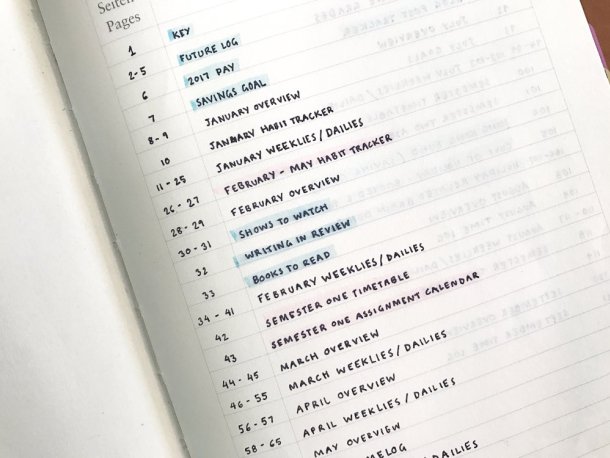 Seiten
Pages
1 KEY
2-5 FUTURE LOG
6 2017 PAY
7 SAVINGS GOAL
8-9 JANUARY OVERVIEW
10 JANUARY HABIT TRACKER
11-25 JANUARY WEEKLIES/DAILIES
26-27 FEBRUARY - MAY HABIT TRACKER
28-29 FEBRUARY OVERVIEW
30-31 SHOWS TO WATCH
32 WRITING IN REVIEW
33 BOOKS TO READ
34-41 FEBRUARY WEEKLIES/DAILIES
42 SEMESTER ONE TIMETABLE
43 SEMESTER ONE ASSIGNMENT CALENDAR
44-45 MARCH OVERVIEW
46-55 MARCH WEEKLIES/DAILIES
56-57 APRIL OVERVIEW
58-65 APRIL WEEKLIES/DAILIES
MAY OVERVIEW
DAILIES